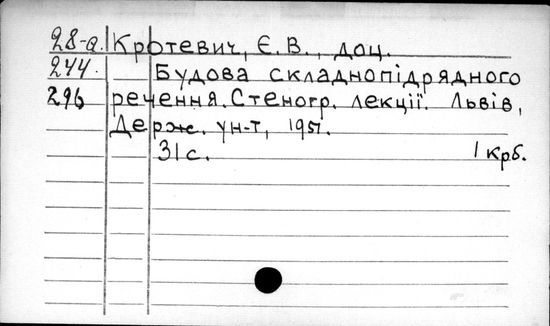 28-а. Кротевич, Є. В., доц.
244. Будова складнопідрядного
296 речення. Стеногр. лекції. Львів,
Держ. ун-т, 1951.
31 с. 1 крб.